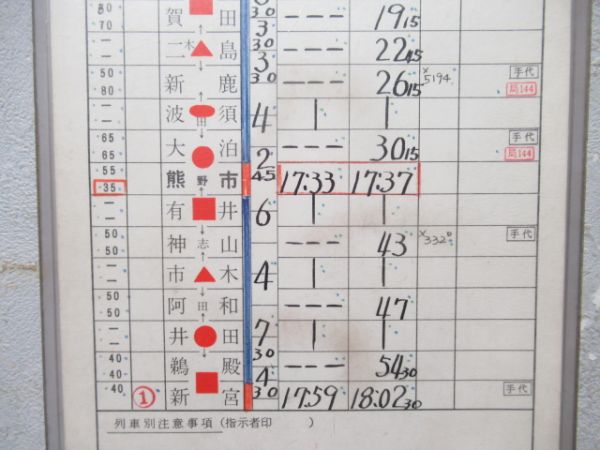 80 賀 田 3 30 --- 19 15
70
二木 島 30 3 --- 22 45
50 新 鹿 30 --- 26 15 ×5194 手代
80 局144
波 田 須 4
65 大 泊 2 --- 30 15 手代
65 局144
55 熊 野 市 45 17:33 17:37
35
有 井 6
50 神 志 山 --- 43 ×332D 手代
50
市 木 4
50 阿 田 和 --- 47
50
井 田 7
40 鵜 殿 30 4 --- 54 30
40
40 ① 新 宮 30 17:59 18:02 30 手代
列車別注意事項 (指示者印 )